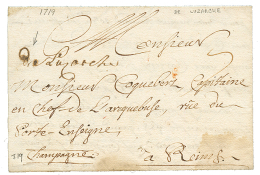 1719
DE LUZARCHE
Monsieur
de Lusarche
Monsieur Coquebert Capitaine
en chef de L'arquebuse, rüe du
Porte-Enseigne,
en Champagne
a Reims.